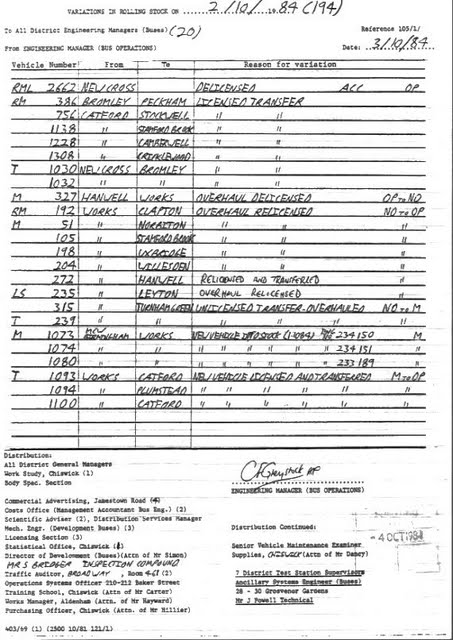 VARIATIONS IN ROLLING STOCK ON 2/10/ 1984 (194)
To All District Engineering Managers (Buses) (20) Reference 105/1/
From ENGINEERING MANAGER (BUS OPERATIONS) Date: 3/10/84
Vehicle Number From To Reason for variation
RML 2662 NEW CROSS DELICENSED ACC OP
RM 386 BROMLEY PECKHAM LICENSED TRANSFER
756 CATFORD STOCKWELL " "
1138 " STAMFORD BROOK " "
1228 " CAMBERWELL " "
1308 " CRICKLEWOOD " "
T 1030 NEW CROSS BROMLEY " "
1032 " " " "
M 327 HANWELL WORKS OVERHAUL DELICENSED OP TO NO
RM 192 WORKS CLAPTON OVERHAUL RELICENSED NO TO OP
M 51 " NORBITON " " "
105 " STAMFORD BROOK " " "
198 " UXBRIDGE " " "
204 " WILLESDEN " " "
272 " HANWELL RELICENSED AND TRANSFERRED "
LS 235 " LEYTON OVERHAUL RELICENSED "
315 " TURNHAM GREEN UNLICENSED TRANSFER-OVERHAULED NO TO M
T 239 " " " " "
M 1073 MCW BIRMINGHAM WORKS NEW VEHICLE INTO STOCK (1.0984) 234150 M
1074 " " " " " " 234151 "
1080 " " " " " " 233189 "
T 1093 WORKS CATFORD NEW VEHICLE LICENSED AND TRANSFERRED M TO OP
1094 " PLUMSTEAD " " " " "
1100 " CATFORD " " " " "
Distribution:
All District General Managers
Work Study, Chiswick (1)
Body Spec. Section
ENGINEERING MANAGER (BUS OPERATIONS)
Commercial Advertising, Jamestown Road
Costs Office (Management Accountant Bus Eng.) (2)
Scientific Adviser (2), Distribution Services Manager
Mech. Engr. (Development Buses) (3)
Licensing Section (3)
Statistical Office, Chiswick
Director of Development (Buses)(Attn of Mr Simon)
MRS BRIDGEN INSPECTION COMPOUND
Traffic Auditor, BROADWAY, Room 421 (1)
Operations Systems Officer 210-212 Baker Street
Training School, Chiswick (Attn of Mr Carter)
Works Manager, Aldenham (Attn. of Mr Hayward)
Purchasing Officer, Chiswick (Attn. of Mr Hillier)
Distribution Continued:
- 4 OCT 1984
Senior Vehicle Maintenance Examiner
Supplies, CHISWICK (Attn of Mr Dabcy)
7 District Test Station Supervisors
Ancillary Systems Engineer (Buses)
28 - 30 Grosvenor Gardens
Mr J Powell Technical
403/69 (1) (2500 10/81 121/1)